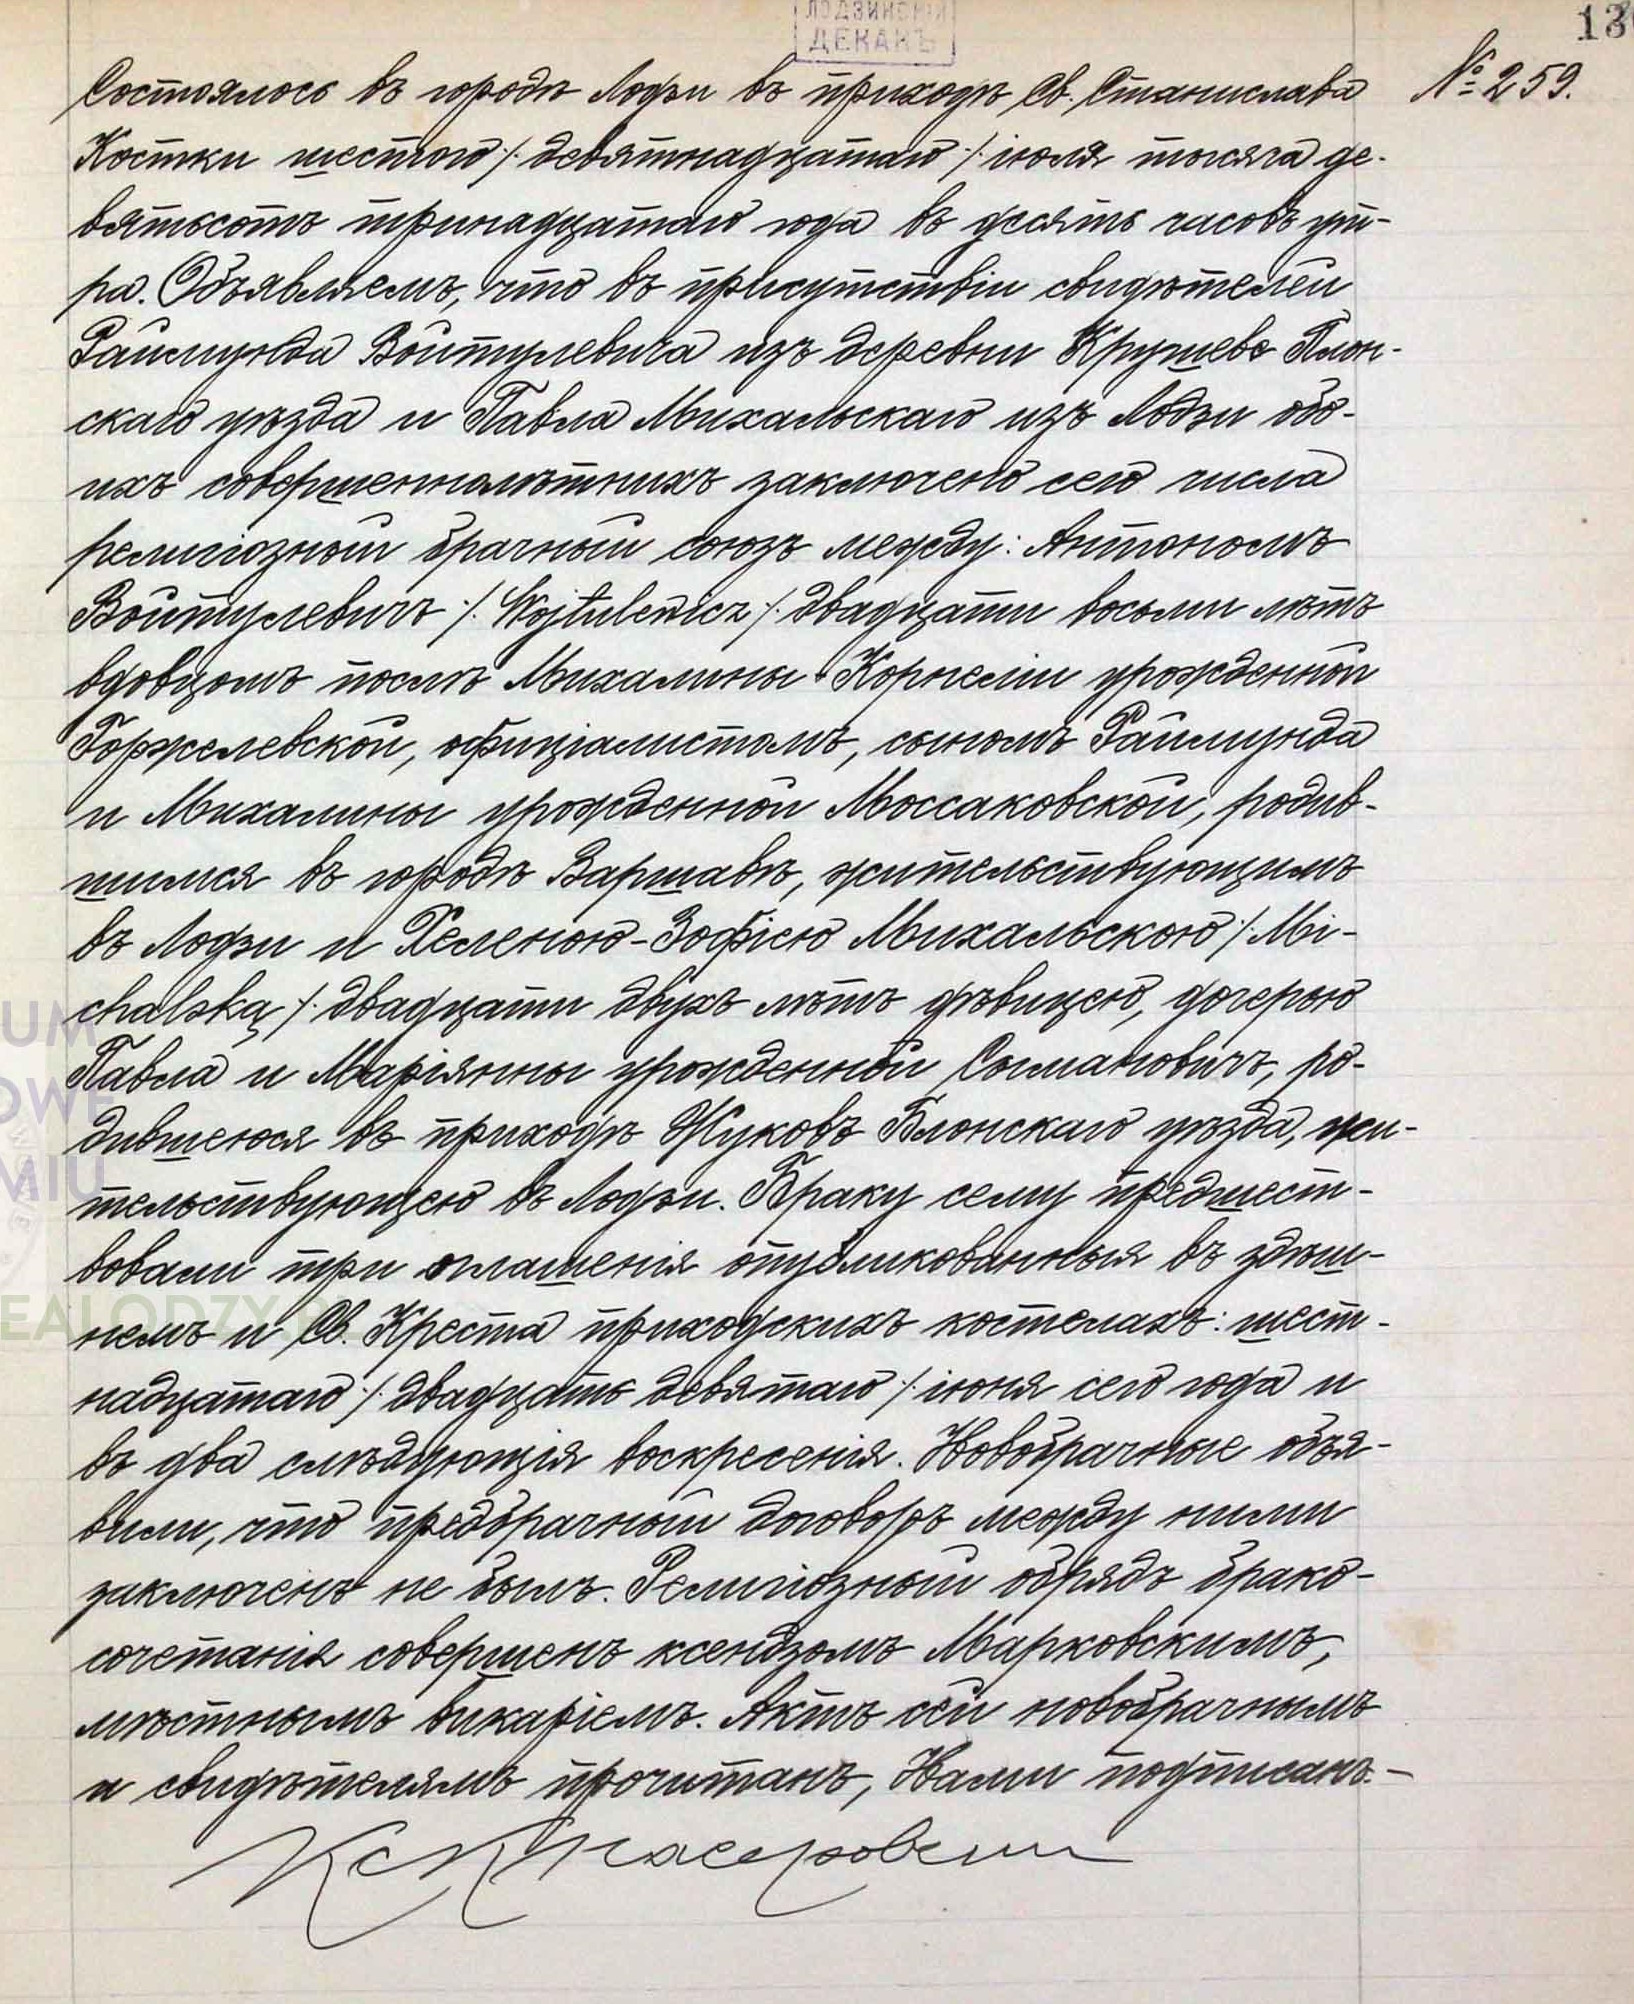 ЛОДЗИНСКІЙ
ДЕКАНЪ
13
№ 259.
Состоялось въ городѣ Лодзи въ приходѣ Св. Станислава
Костки шестого /: девятнадцатаго :/ іюля тысяча де-
вятьсотъ тринадцатаго года въ десять часовъ ут-
ра. Объявляемъ, что въ присутствіи свидѣтелей
Раймунда Войтулевича изъ деревни Крушево Плон-
скаго уѣзда и Павла Михальскаго изъ Лодзи обо-
ихъ совершеннолѣтнихъ заключено сего числа
религіозный брачный союзъ между: Антономъ
Войтулевичъ /: Wojtulewicz :/ двадцати восьми лѣтъ
вдовцомъ послѣ Михалины-Корнеліи урожденной
Горжелевской, офиціалистомъ, сыномъ Раймунда
и Михалины урожденной Моссаковской, родив-
шимся въ городѣ Варшавѣ, жительствующимъ
въ Лодзи и Хеленою-Зофіею Михальскою /: Mi-
chalską :/ двадцати двухъ лѣтъ дѣвицею, дочерью
Павла и Маріянны урожденной Сымановичъ, ро-
дившеюся въ приходѣ Жуковъ Блонскаго уѣзда, жи-
тельствующею въ Лодзи. Браку сему предшест-
вовали три оглашенія опубликованныя въ здѣш-
немъ и Св. Креста приходскихъ костелахъ: шест-
надцатаго /: двадцать девятаго :/ іюня сего года и
въ два слѣдующія воскресенія. Новобрачные объя-
вили, что предбрачный договоръ между ними
заключенъ не былъ. Религіозный обрядъ брако-
сочетанія совершенъ ксендзомъ Марковскимъ,
мѣстнымъ викаріемъ. Актъ сей новобрачнымъ
и свидѣтелямъ прочитанъ, Нами подписанъ.-
UM
OWE
MIU
EALODZY.P